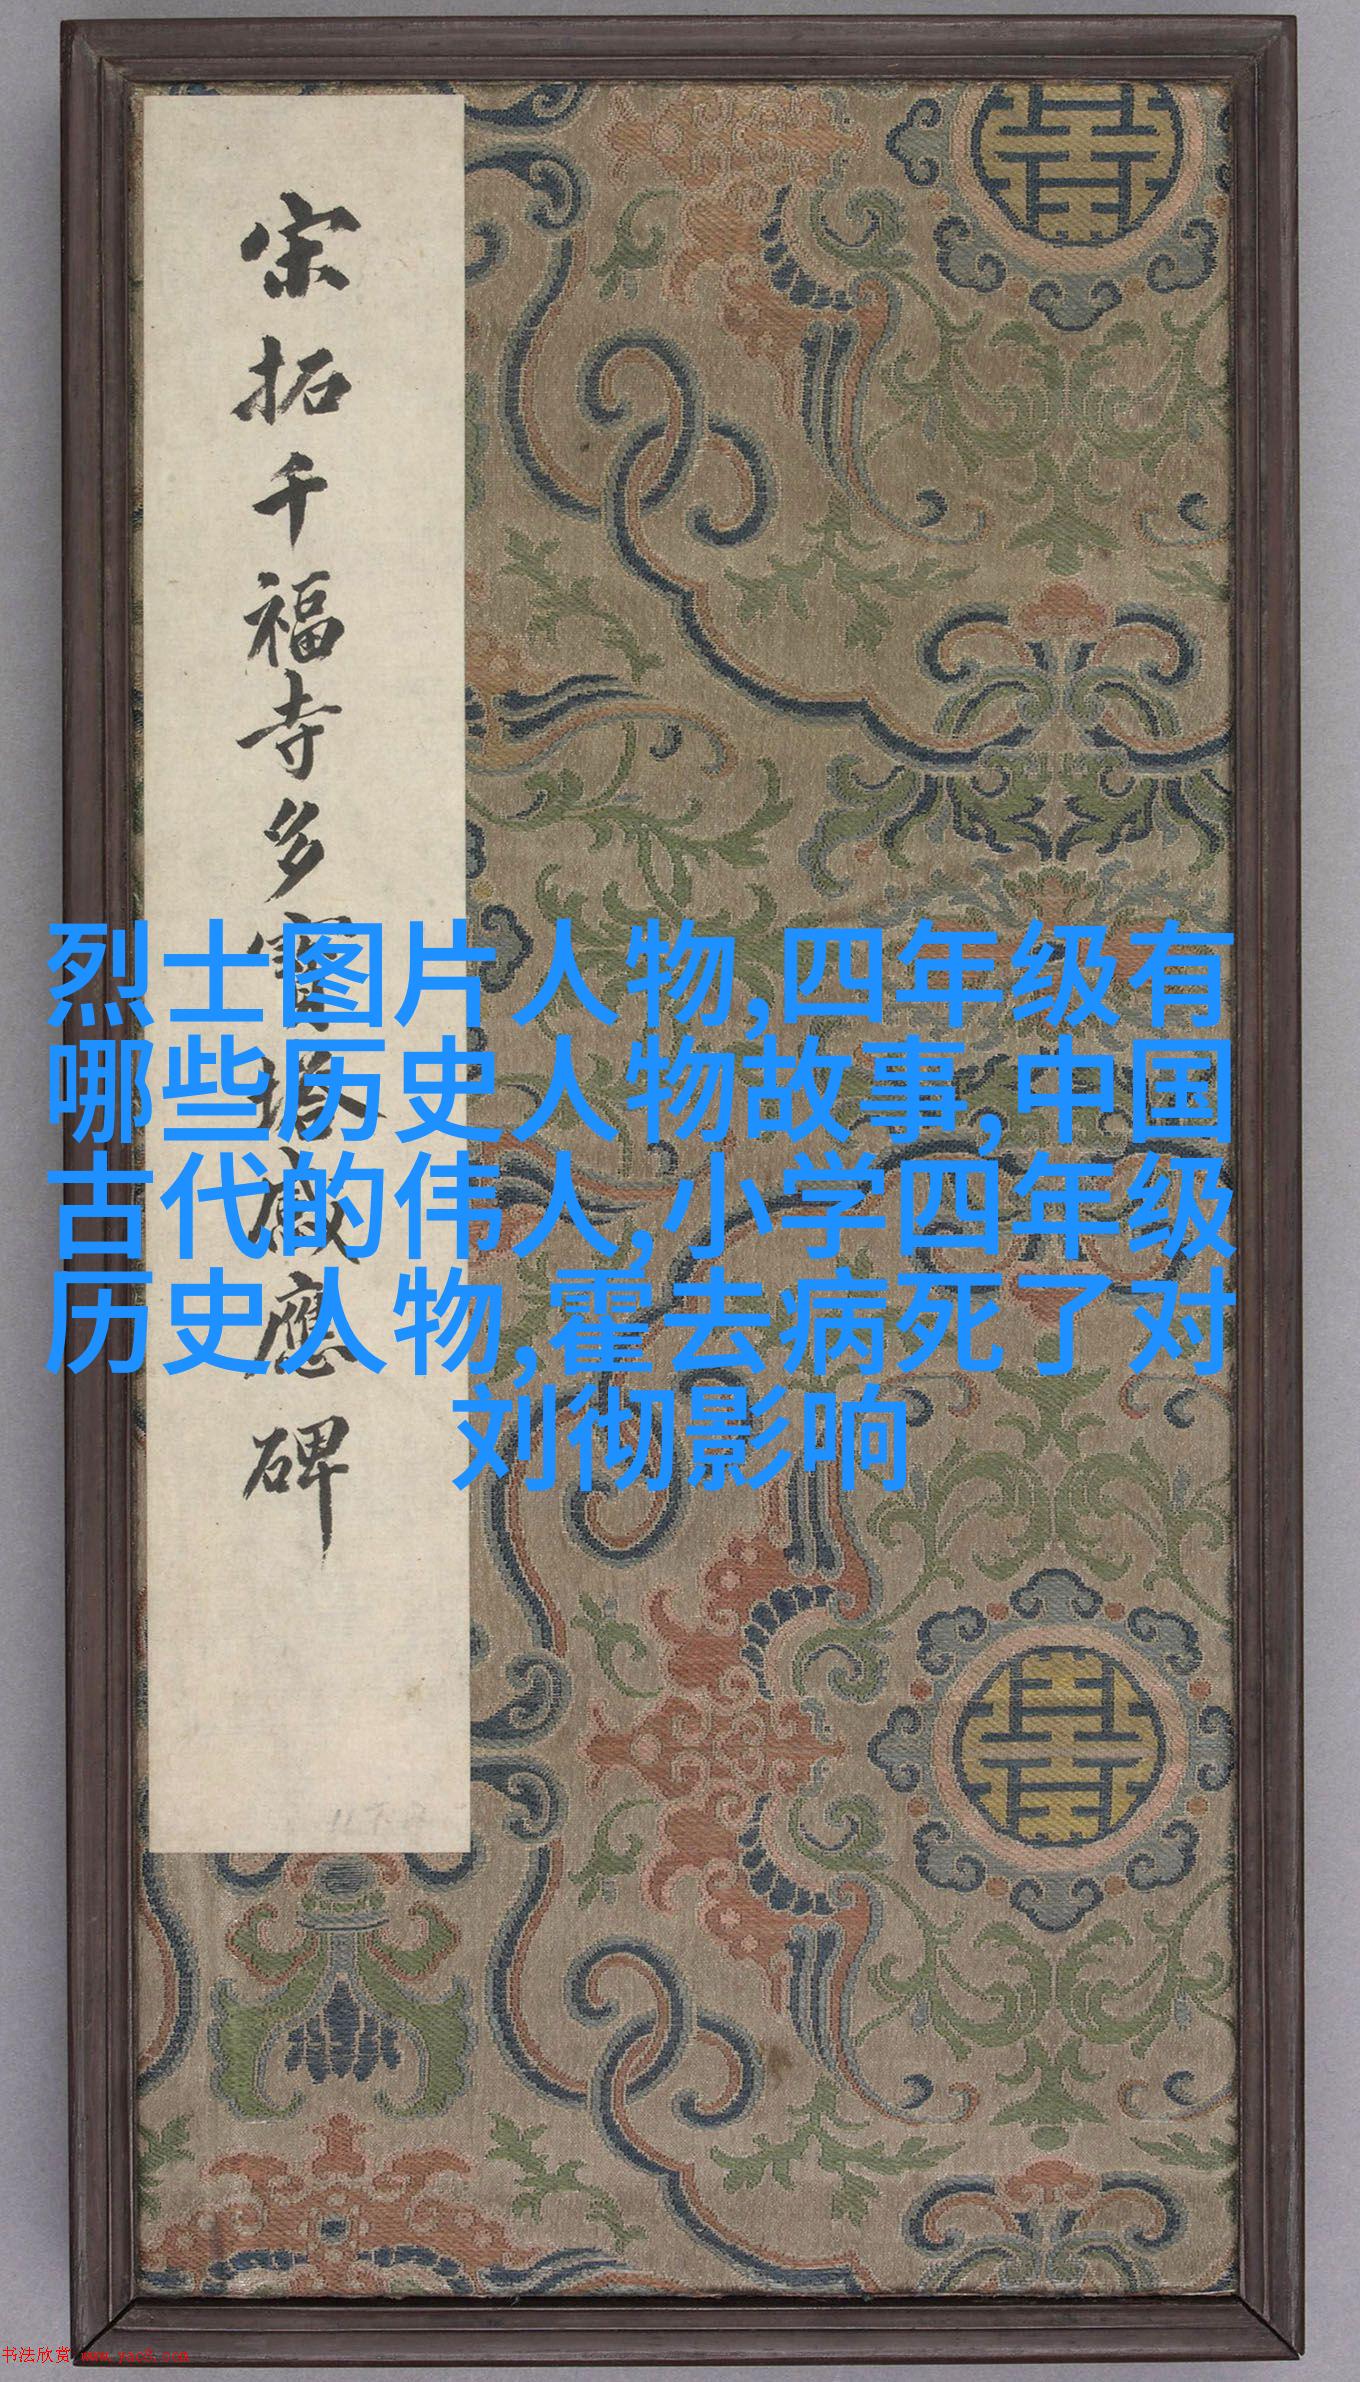 宋拓千福寺多寶塔感應碑
烈士图片人物,四年级有
哪些历史人物故事,中国
古代的伟人,小学四年级
历史人物,霍去病死了对
刘彻影响
书法欣赏 www.yac8.com